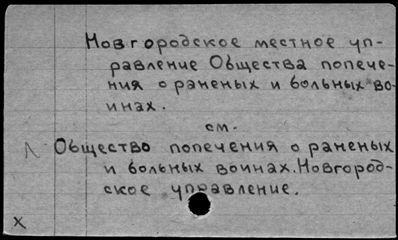 Новгородское местное уп-
равление Общества попече-
ния о раненых и больных во-
инах.
см.
Общество попечения о раненых
и больных воинах. Новгород-
ское управление.
х